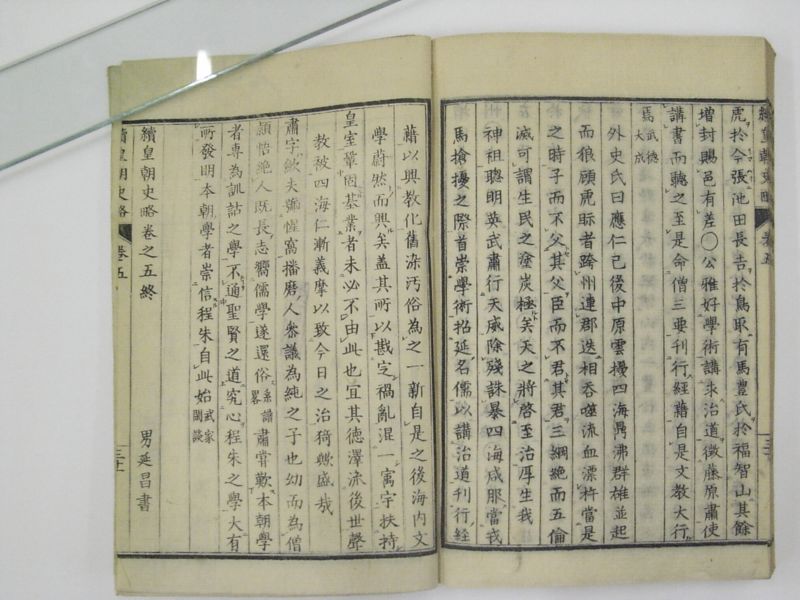 續皇朝史略 卷五
虎於令張池田長吉於鳥取有馬豐氏於福智山其餘
增封賜邑有差〇公雅好學術講求治道徵藤原肅使
講書而聽之至是命僧三要刊行經籍自是文教大行
焉武德大成
外史氏曰應仁已後中原雲擾四海鼎沸群雄並起
而狼顧虎眎者跨州連郡迭相吞噬流血漂杵當是
之時子而不父其父臣而不君其君三綱絶而五倫
滅可謂生民之塗炭極矣天之將啓至治厚生我
神祖聰明英武肅行天威除殘誅暴四海咸服當我
馬搶擾之際首崇學術招延名儒以講治道刊行經
籍以興教化舊染汚俗為之一新自是之後海内文
學蔚然而興矣蓋其所以戡定禍亂混一寓宇扶持
皇室鞏固基業者未必不由此也宜其德澤流後世聲
教被四海仁漸義摩以致今日之治猗歟盛哉
肅字歛夫號惺窩播磨人參議為純之子也幼而為僧
頴悟絶人既長志嚮儒學遂還俗系譜略肅嘗歎本朝學
者專為訓詁之學不通聖賢之道究心程朱之學大有
所發明本朝學者崇信程朱自此始武家閑談
續皇朝史略卷之五終
男延昌書
續皇朝史略 卷五
三十一